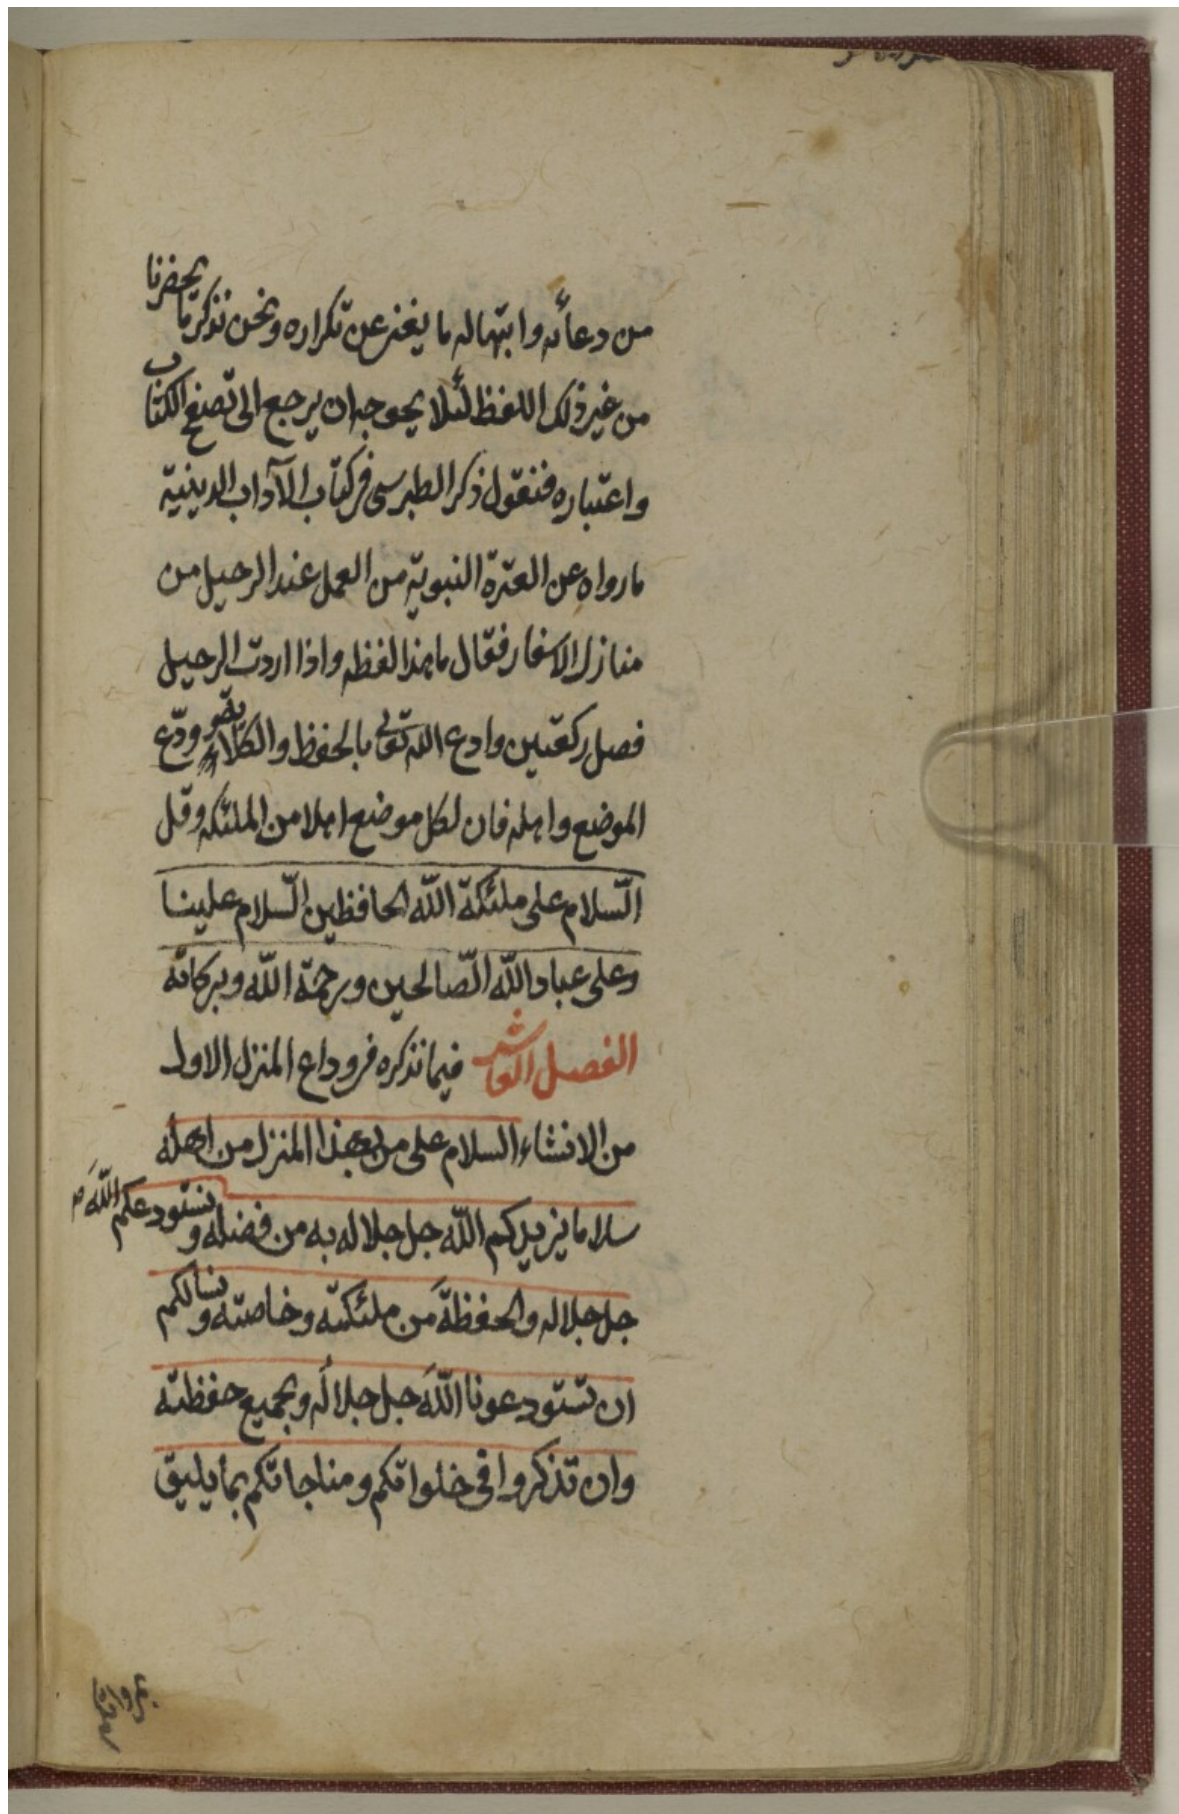 من دعائه وابتهاله ما يغنى عن تكراره ونحن نذكر ما يحضرنا
من غير ذلك اللفظ لئلا يحوجه ان يرجع الى تصفح الكتاب
واعتباره فنقول ذكر الطبرسى فى كتاب الآداب الدينية
ما رواه عن العترة النبوية من العمل عند الرحيل من
منازل الاسفار فقال ما هذا لفظه واذا اردت الرحيل
فصل ركعتين وادع الله تعالى بالحفظ والكلاء ودّع
الموضع واهله فان لكل موضع اهلا من الملئكه وقل
السّلام على ملئكة اللّه الحافظين السّلام علينا
وعلى عباد اللّه الصّالحين ورحمة اللّه وبركاته
الفصل العاشر فيما نذكره فى وداع المنزل الاول
من الانشاء السلام على من بهذا المنزل من اهله
سلاما يزيدكم اللّه جل جلاله به من فضله ونستودعكم اللّهَ
جل جلاله والحفظةَ من ملئكته وخاصته ونسالكم
ان تستودعونا اللّهَ جل جلالَه وبجميع حفظته
وان تذكروا فى خلواتكم ومناجاتكم بما يليق